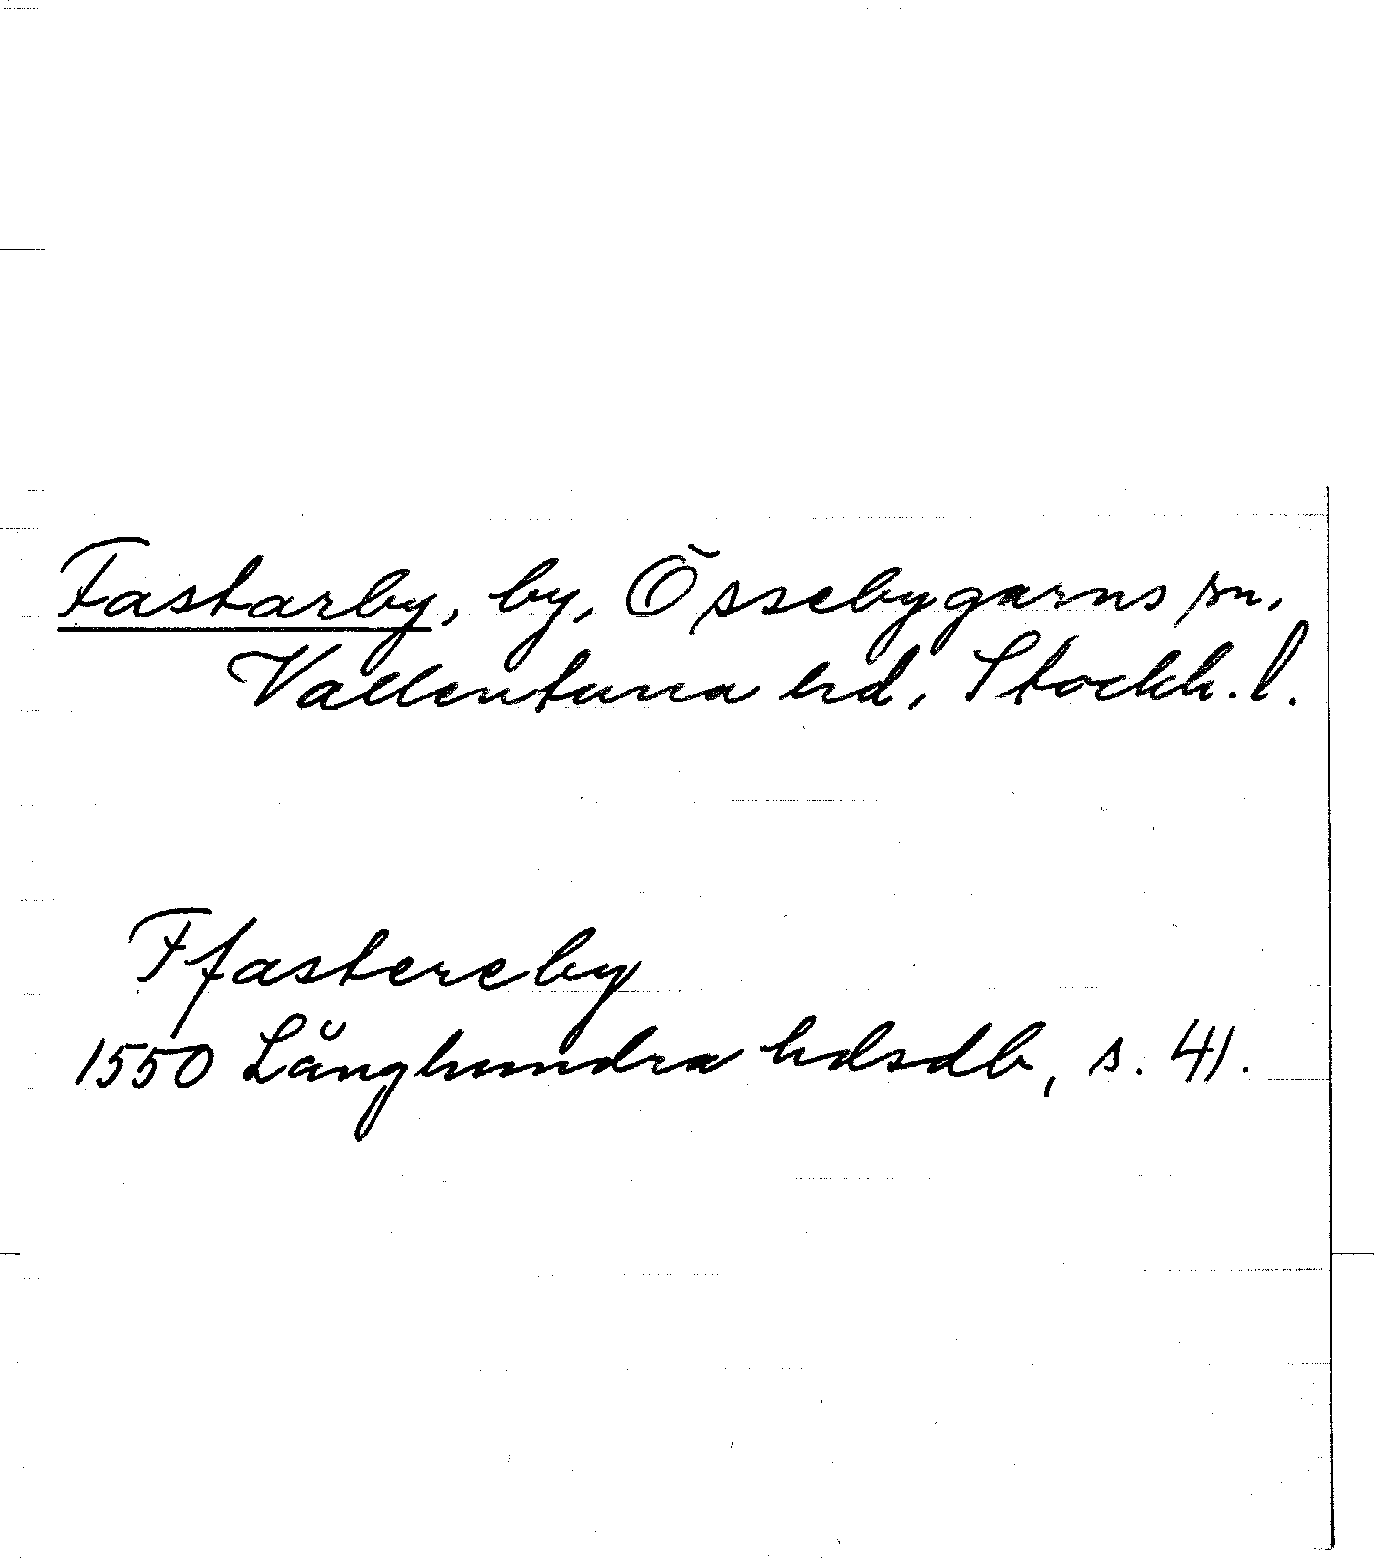 Fastarby, by, Össebygarns sn,
Vallentuna hd, Stockh. l.
Ffastereby
1550 Långhundra hdsdb, s. 41.